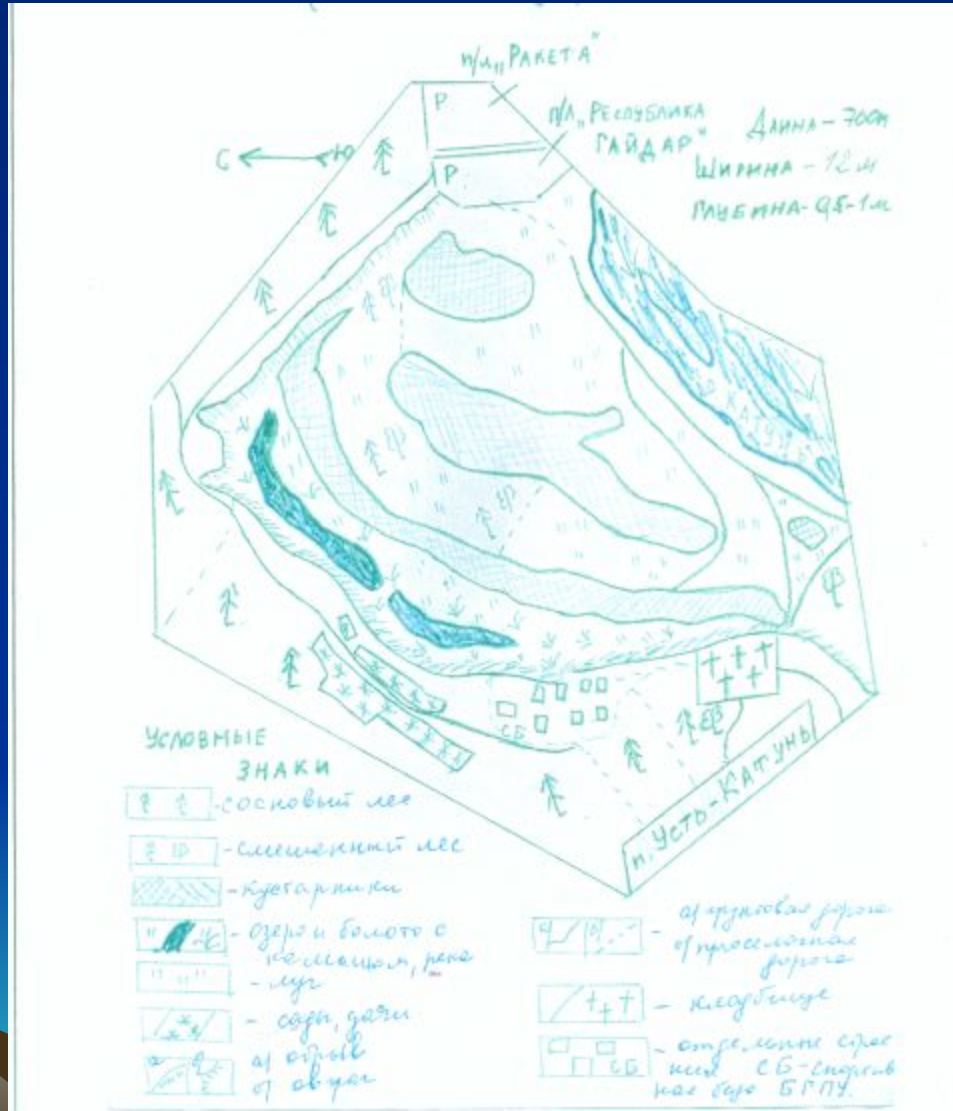 п/л „РАКЕТА"
п/л „РЕСПУБЛИКА
ГАЙДАР"
ДЛИНА – 700м
ШИРИНА – 12 м
ГЛУБИНА – 0,5-1м
С
Ю
Р
Р
КАТУНЬ
СБ
п. УСТЬ-КАТУНЬ
УСЛОВНЫЕ
ЗНАКИ
- сосновый лес
- смешенный лес
- кустарники
- озеро и болото с
камышом, река
- луг
- сады, дачи
а) обрыв
б) овраг
а) грунтовая дорога
б) проселочная
дорога
- кладбище
СБ
- отдельные строе
ния СБ-спортив
ная база БГПУ.